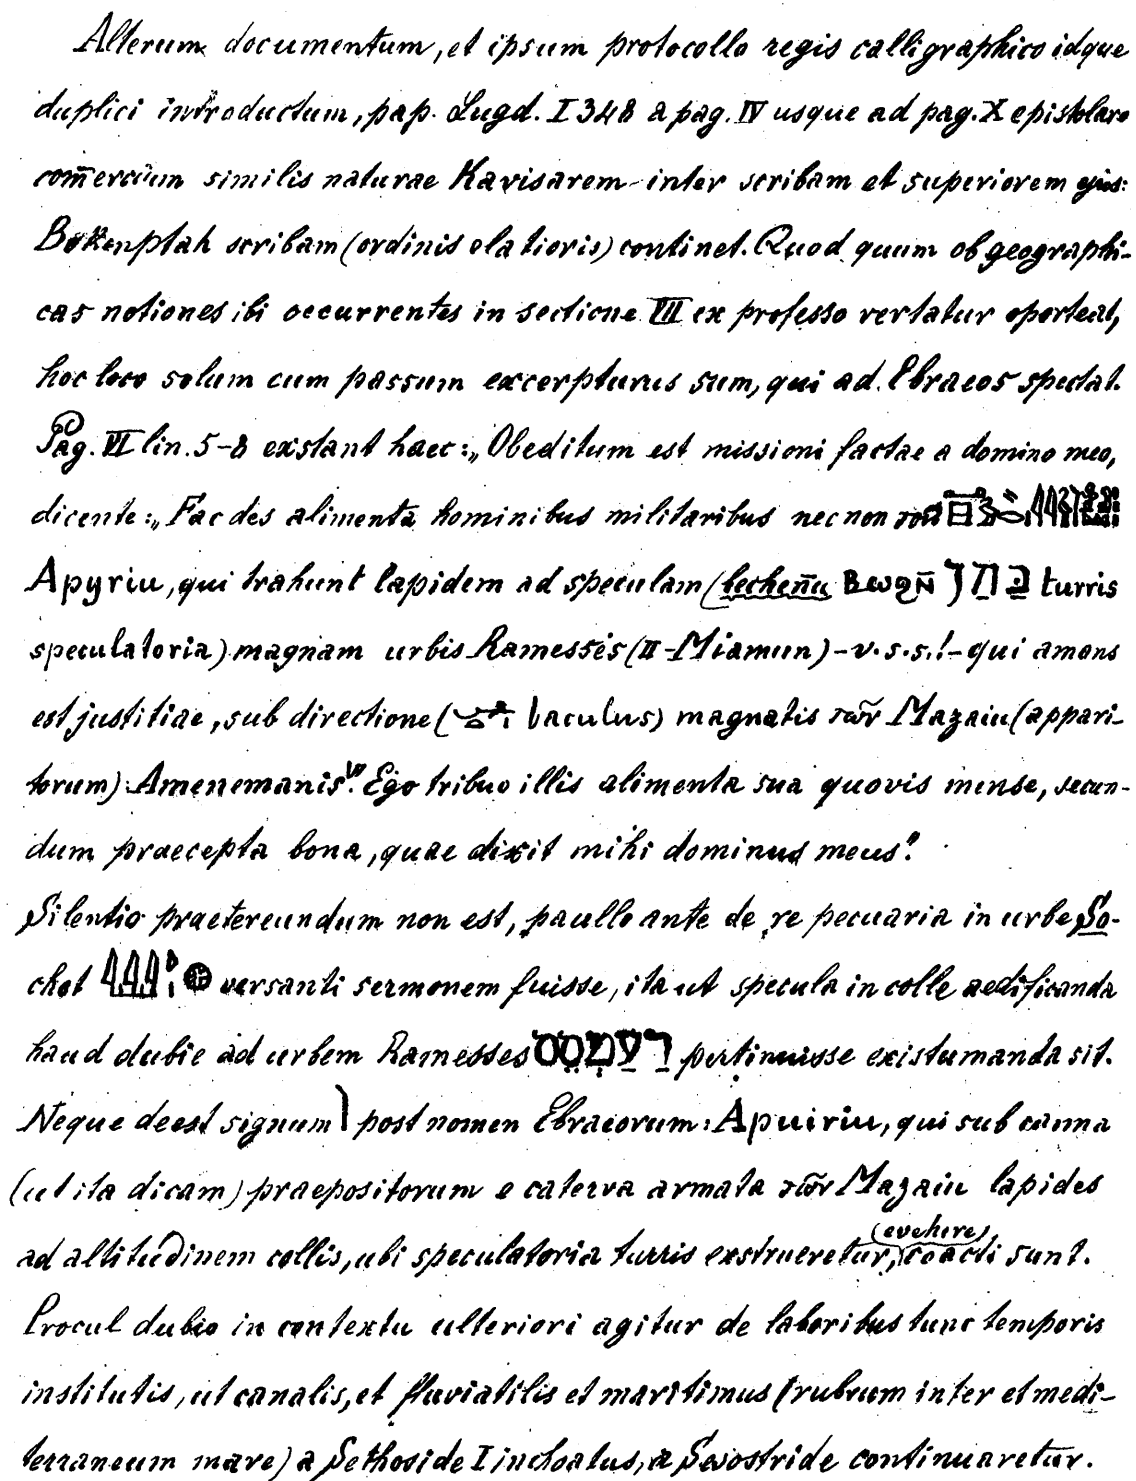 Alterum documentum, et ipsum protocollo regis calligraphico idque
duplici introductum, pap. Lugd. I 348 a pag. IV usque ad pag. X epistolare
com̄ercium similis naturae Kavisarem inter scribam et superiorem ejus:
Bokenptah scribam (ordinis elatioris) continet. Quod quum ob geographi-
cas notiones ibi occurrentes in sectione VII ex professo vertatur oporteat,
hoc loco solum eum passum excerpturus sum, qui ad Ebraeos spectat.
Pag. VI lin. 5-8 exstant haec: „Obeditum est missioni factae a domino meo,
dicente: „Fac des alimenta hominibus militaribus nec non τοῖς
Apyriu, qui trahunt lapidem ad speculam (bechen̄u ⲃⲱϣⲛ̄ בחן turris
speculatoria) magnam urbis Ramesses (II-Miamun) - v. s. s.! - qui amans
est justitiae, sub directione ( baculus) magnatis τῶν Mazaiu (appari-
torum) Amenemanis. Ego tribuo illis alimenta sua quovis mense, secun-
dum praecepta bona, quae dixit mihi dominus meus".
Silentio praetereundum non est, paullo ante de re pecuaria in urbe So-
chot versanti sermonem fuisse, ita ut specula in colle aedificanda
haud dubie ad urbem Ramesses רַעְמְסֵס pertinuisse existumanda sit.
Neque deest signum post nomen Ebraeorum: Apuiriu, qui sub canna
(ut ita dicam) praepositorum e caterva armata τῶν Mazaiu lapides
ad altitudinem collis, ubi speculatoria turris exstrueretur, (evehere) coacti sunt.
Procul dubio in contextu ulteriori agitur de laboribus tunc temporis
institutis, ut canalis, et fluviatilis et maritimus (rubrum inter et medi-
terraneum mare) a Sethoside I inchoatus, a Sesostride continuaretur.